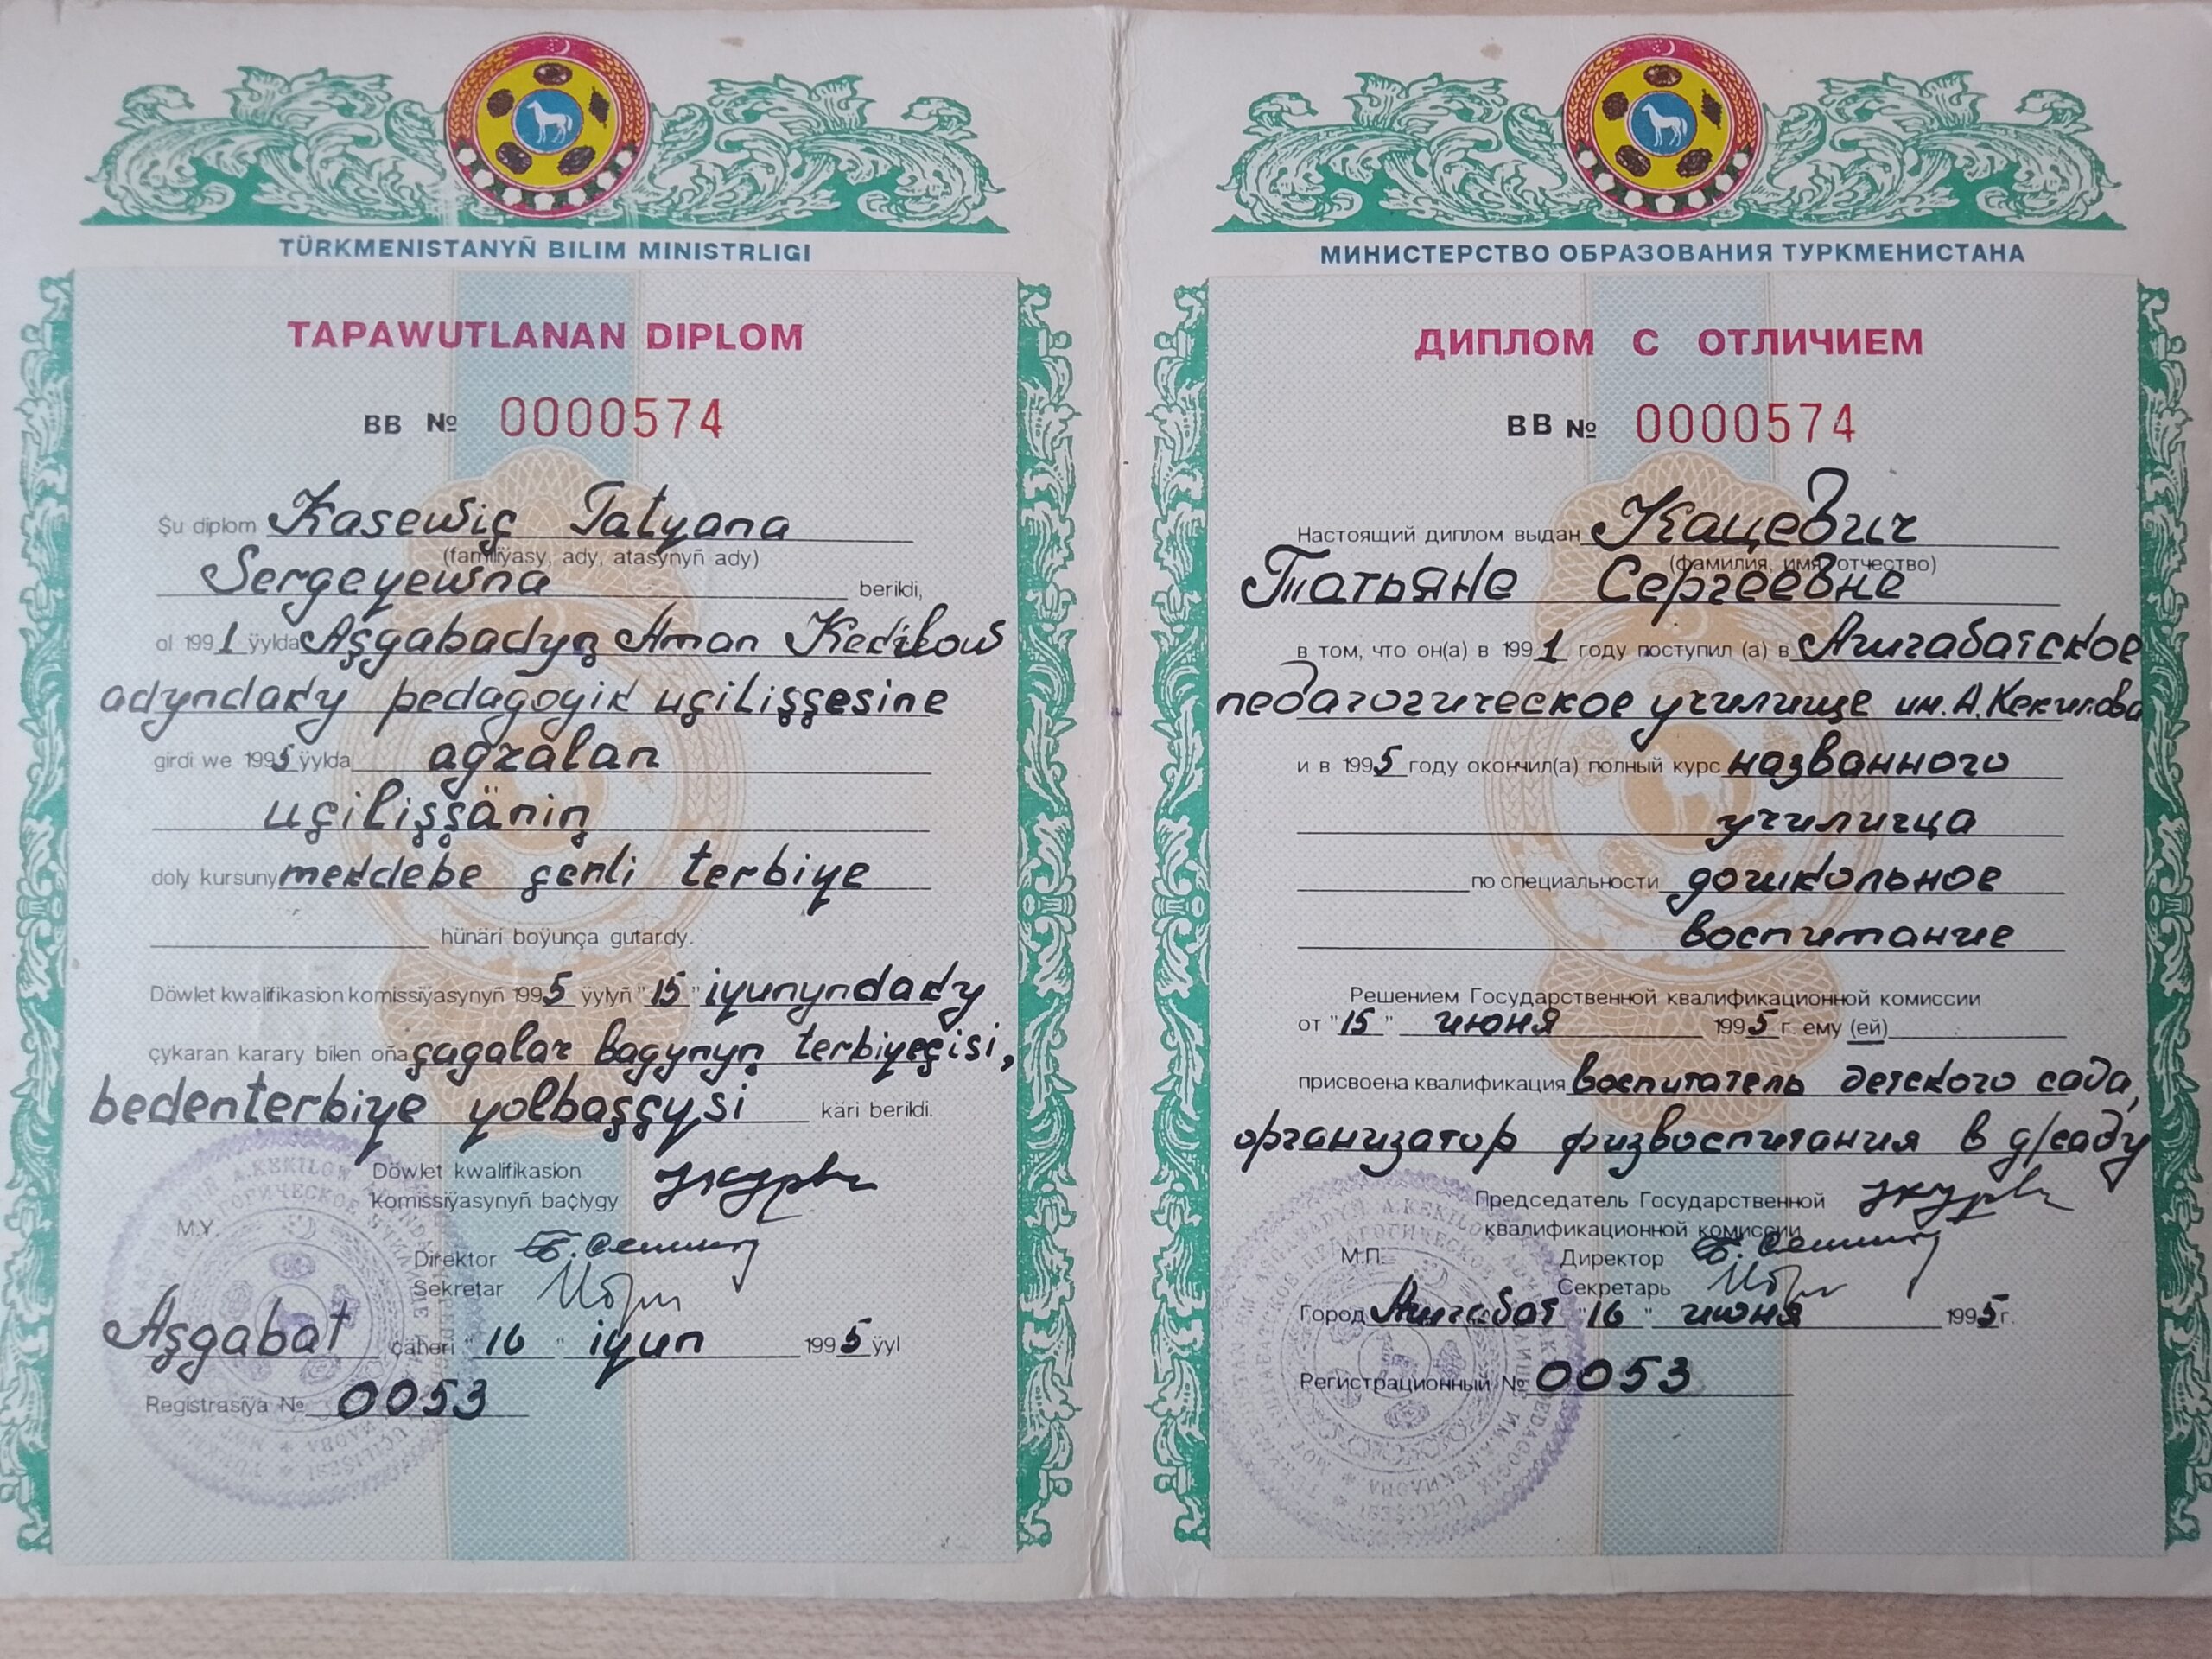 TÜRKMENISTANYÑ BILIM MINISTRLIGI
TAPAWUTLANAN DIPLOM
BB № 0000574
Şu diplom Kasewiç Tatyana
(familiÿasy, ady, atasynyñ ady)
Sergeyewna berildi,
ol 1991 ÿylda Aşgabadyņ Aman Kekilow
adyndaky pedagogik uçilişşesine
girdi we 1995 ÿylda agzalan
uçilişşäniņ
doly kursuny mekdebe çenli terbiye
hünäri boÿunça gutardy.
Döwlet kwalifikasion komissiÿasynyñ 1995 ÿylyñ "15" iyunyndaky
çykaran karary bilen oña çagalar bagynyņ terbiyeçisi,
bedenterbiye yolbaşçysi käri berildi.
Döwlet kwalifikasion
komissiÿasynyñ baçlygy
M.Y.
Direktor
Sekretar
Aşgabat çäheri "16" iyun 1995 ÿyl
Registrasiÿa № 0053
МИНИСТЕРСТВО ОБРАЗОВАНИЯ ТУРКМЕНИСТАНА
ДИПЛОМ С ОТЛИЧИЕМ
ВВ № 0000574
Настоящий диплом выдан Кацевич
(фамилия, имя, отчество)
Татьяне Сергеевне
в том, что он(а) в 1991 году поступил (а) в Ашгабатское
педагогическое училище им. А. Кекилова
и в 1995 году окончил(а) полный курс названного
училища
по специальности дошкольное
воспитание
Решением Государственной квалификационной комиссии
от "15" июня 1995 г. ему (ей)
присвоена квалификация воспитатель детского сада,
организатор физвоспитания в д/саду
Председатель Государственной
квалификационной комиссии
М.П.
Директор
Секретарь
Город Ашгабат "16" июня 1995 г.
Регистрационный № 0053